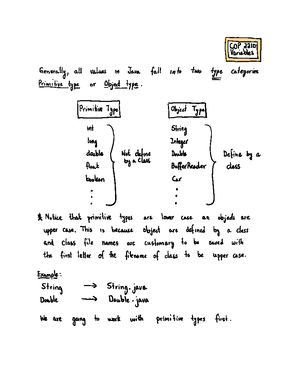 COP 2210
Variables
Generally, all values in Java fall into two type categories
Primitive type or Object type.
Primitive Type
Object Type
int
long
double
float
boolean
Not define
by a class
String
Integer
Double
BufferReader
Car
Define by a
class
Notice that primitive types are lower case an objects are
upper case. This is because object are defined by a class
and class file names are customary to be saved with
the first letter of the filename of class to be upper case.
Example:
String → String.java
Double → Double.java
We are going to work with primitive types first.